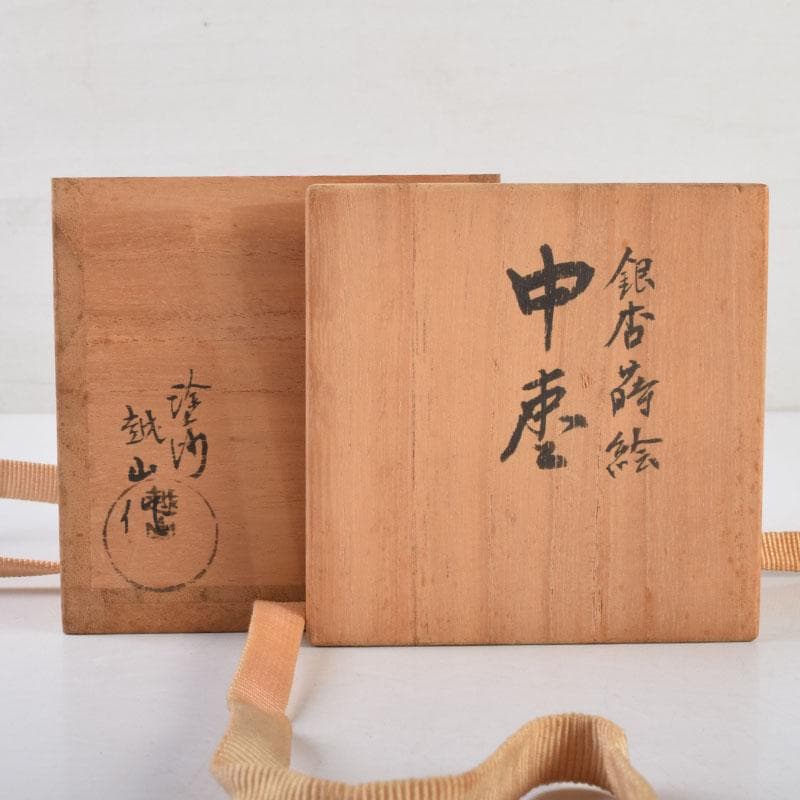 銀杏蒔絵
中棗
塗師
越山作